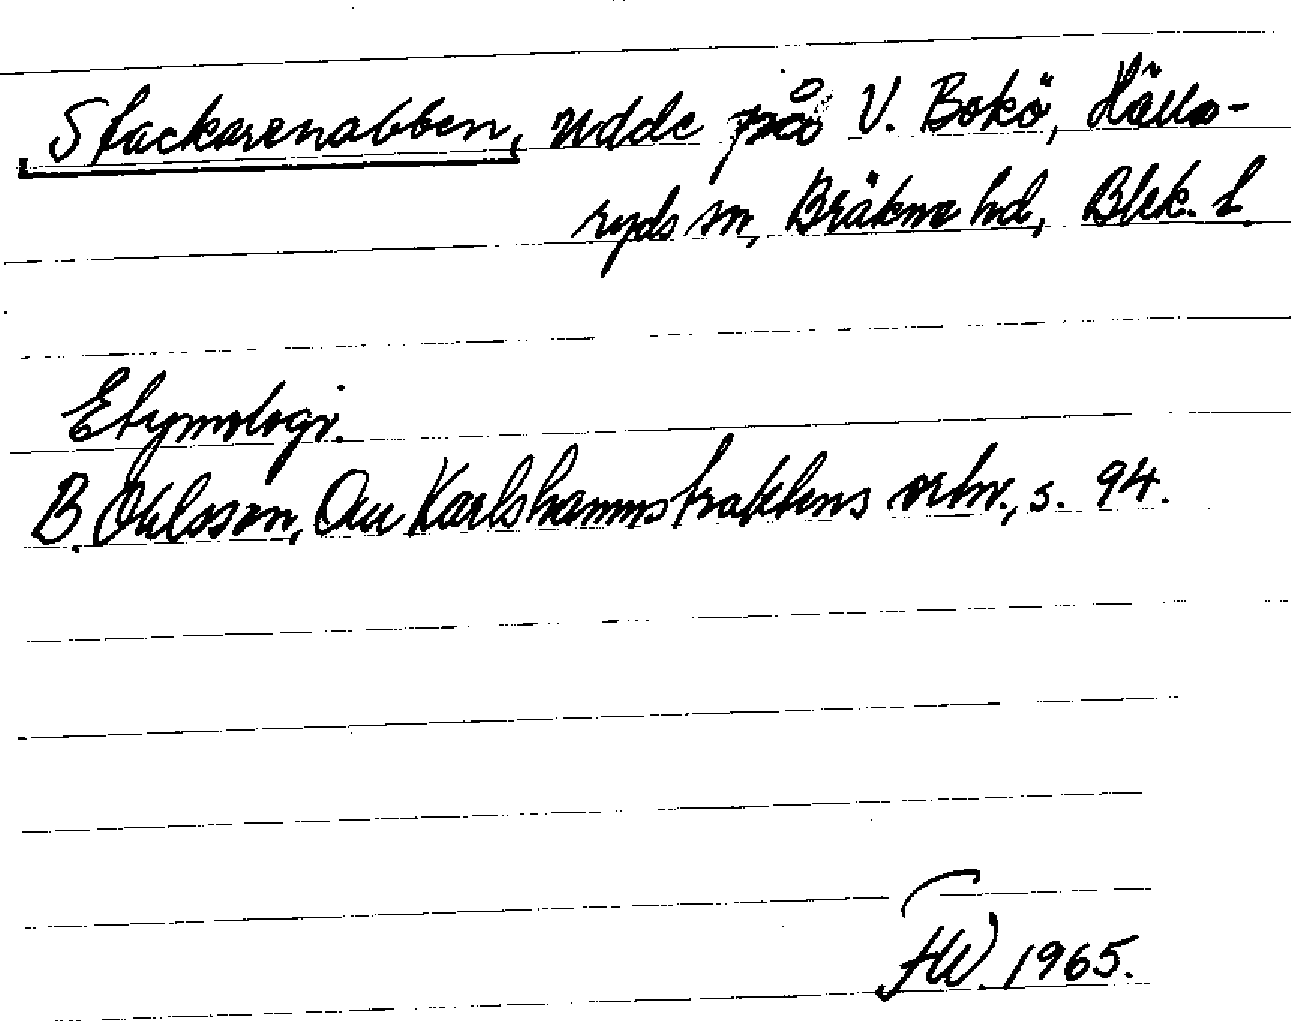 Stackarenabben, udde på V. Bokö, Hälla-
ryds sn, Bräkne hd, Blek. l.
Etymologi.
B. Ohlsson, Om Karlshamnstraktens ortn., s. 94.
FW. 1965.